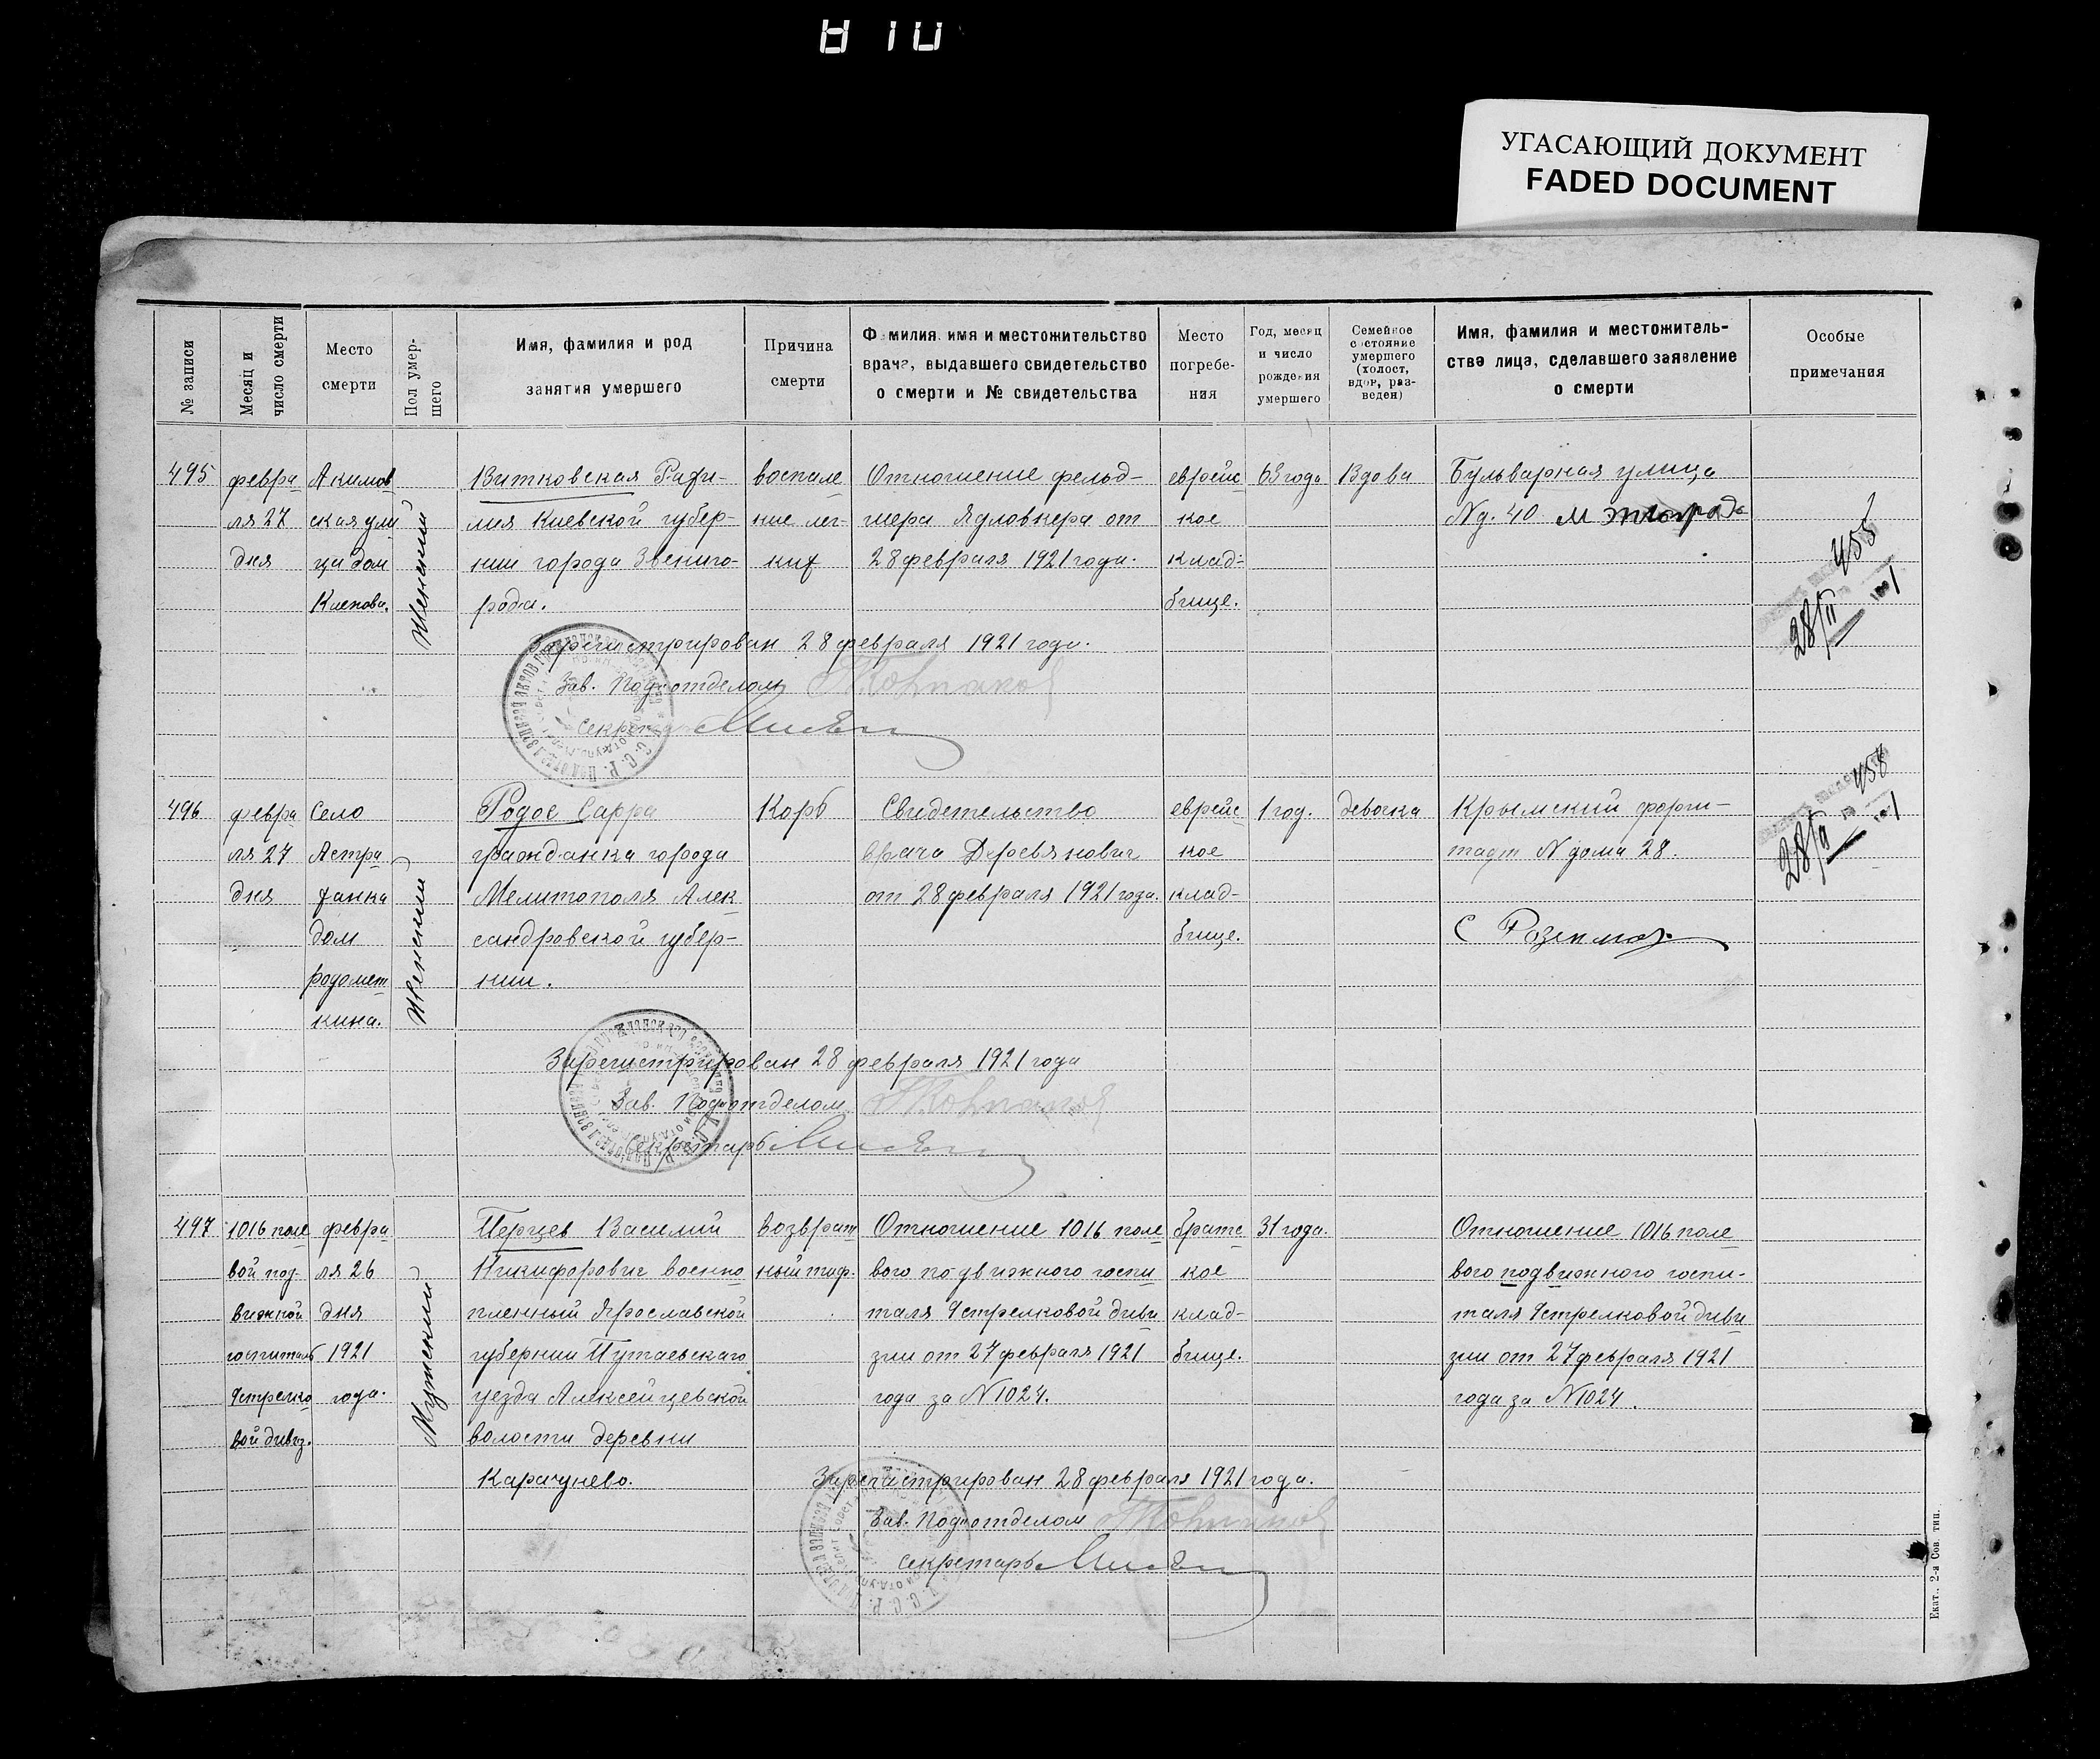 УГАСАЮЩИЙ ДОКУМЕНТ
FADED DOCUMENT
№ записи
Месяц и число смерти
Место смерти
Пол умершего
Имя, фамилия и род занятия умершего
Причина смерти
Фамилия, имя и местожительство врача, выдавшего свидетельство о смерти и № свидетельства
Место погребения
Год, месяц и число рождения умершего
Семейное состояние умершего (холост, вдов, разведен)
Имя, фамилия и местожительства лица, сделавшего заявление о смерти
Особые примечания
495
февра
ля 27
дня
Акимов
ская ули
ца дом
Женский
Витковская Рахи-
лия Киевской губер-
нии города Звениго-
рода.
воспале
ние лег-
ких
Отношение фельд-
шера Ядловкера от
28 февраля 1921 года.
еврейс
кое
клад-
бище.
63 года
Вдова
Бульварная улица
№д. 40
455
28/II
Зарегистрирован 28 февраля 1921 года.
Зав. Подотделом
Секрет
496
февра
ля 27
дня
Село
Астра
ханка
дом
родомет
кина.
Женский
Родос Сарра
гражданка города
Мелитополя Алек
сандровской губер-
нии.
Корь
Свидетельство
врача Деревянович
от 28 февраля 1921 года.
еврейс
кое
клад-
бище.
1 год.
девочка
Крымский форш-
тадт № дома 28.
458
28/II
Зарегистрирован 28 февраля 1921 года
Зав. Подотделом
Секретарь
497
1016 поле
вой под-
вижной
госпиталь
9 стрелко
вой дивиз.
февра
ля 26
дня
1921
года.
Мужской
Перцев Василий
Никифорович военно
пленный Ярославской
губернии Путаевскаго
уезда Алексейцевской
волости деревни
Карачунево.
Возврат
ный тиф.
Отношение 1016 поле
вого подвижного госпи
таля 9 стрелковой диви
зии от 27 февраля 1921
года за №1024.
братс
кое
клад-
бище.
31 года.
Отношение 1016 поле
вого подвижного госпи-
таля 9 стрелковой диви
зии от 27 февраля 1921
года за №1024.
Зарегистрирован 28 февраля 1921 года.
Зав. Подотделом
секретарь
Екат., 2-я Сов. тип.